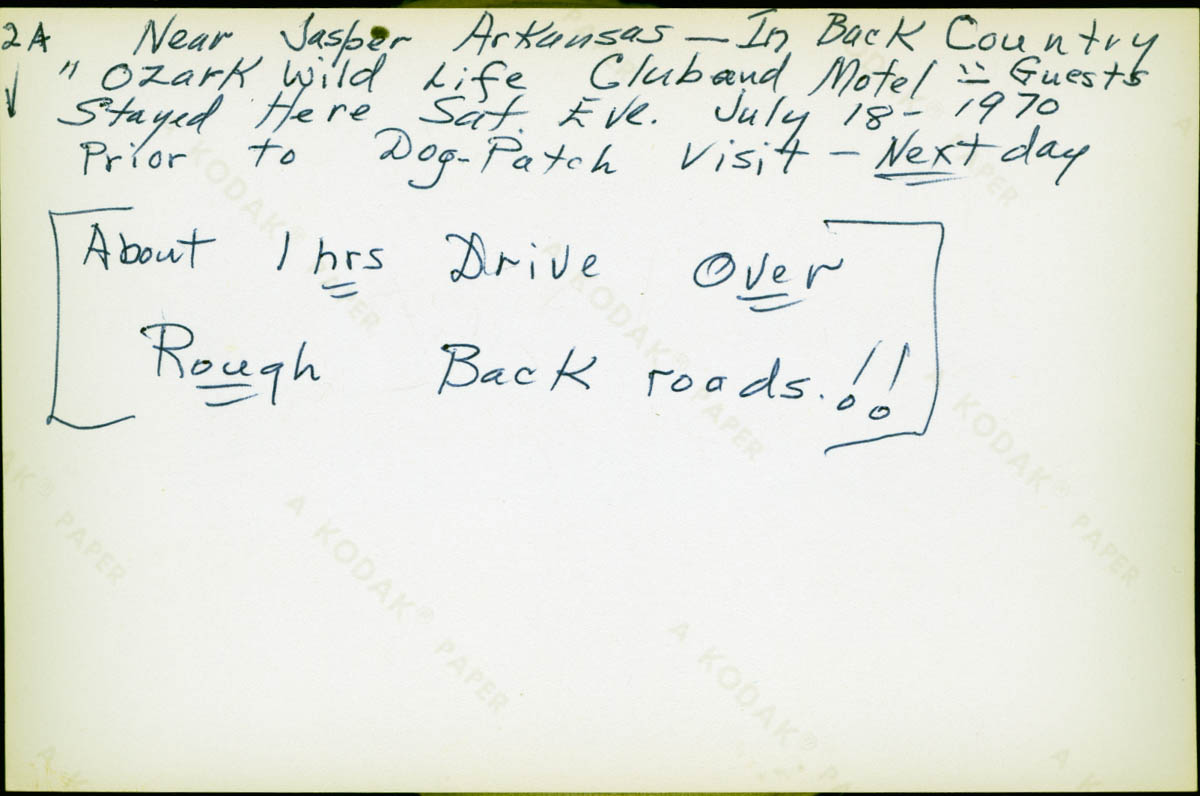 2A Near Jasper Arkansas — In Back Country
" Ozark Wild Life Club and Motel " — Guests
Stayed Here Sat. Eve. July 18 - 1970
Prior to Dog-Patch Visit — Next day
About 1 hrs Drive Over
Rough Back roads.!!
A KODAK® PAPER
A KODAK® PAPER
A KODAK® PAPER
A KODAK® PAPER
A KODAK® PAPER